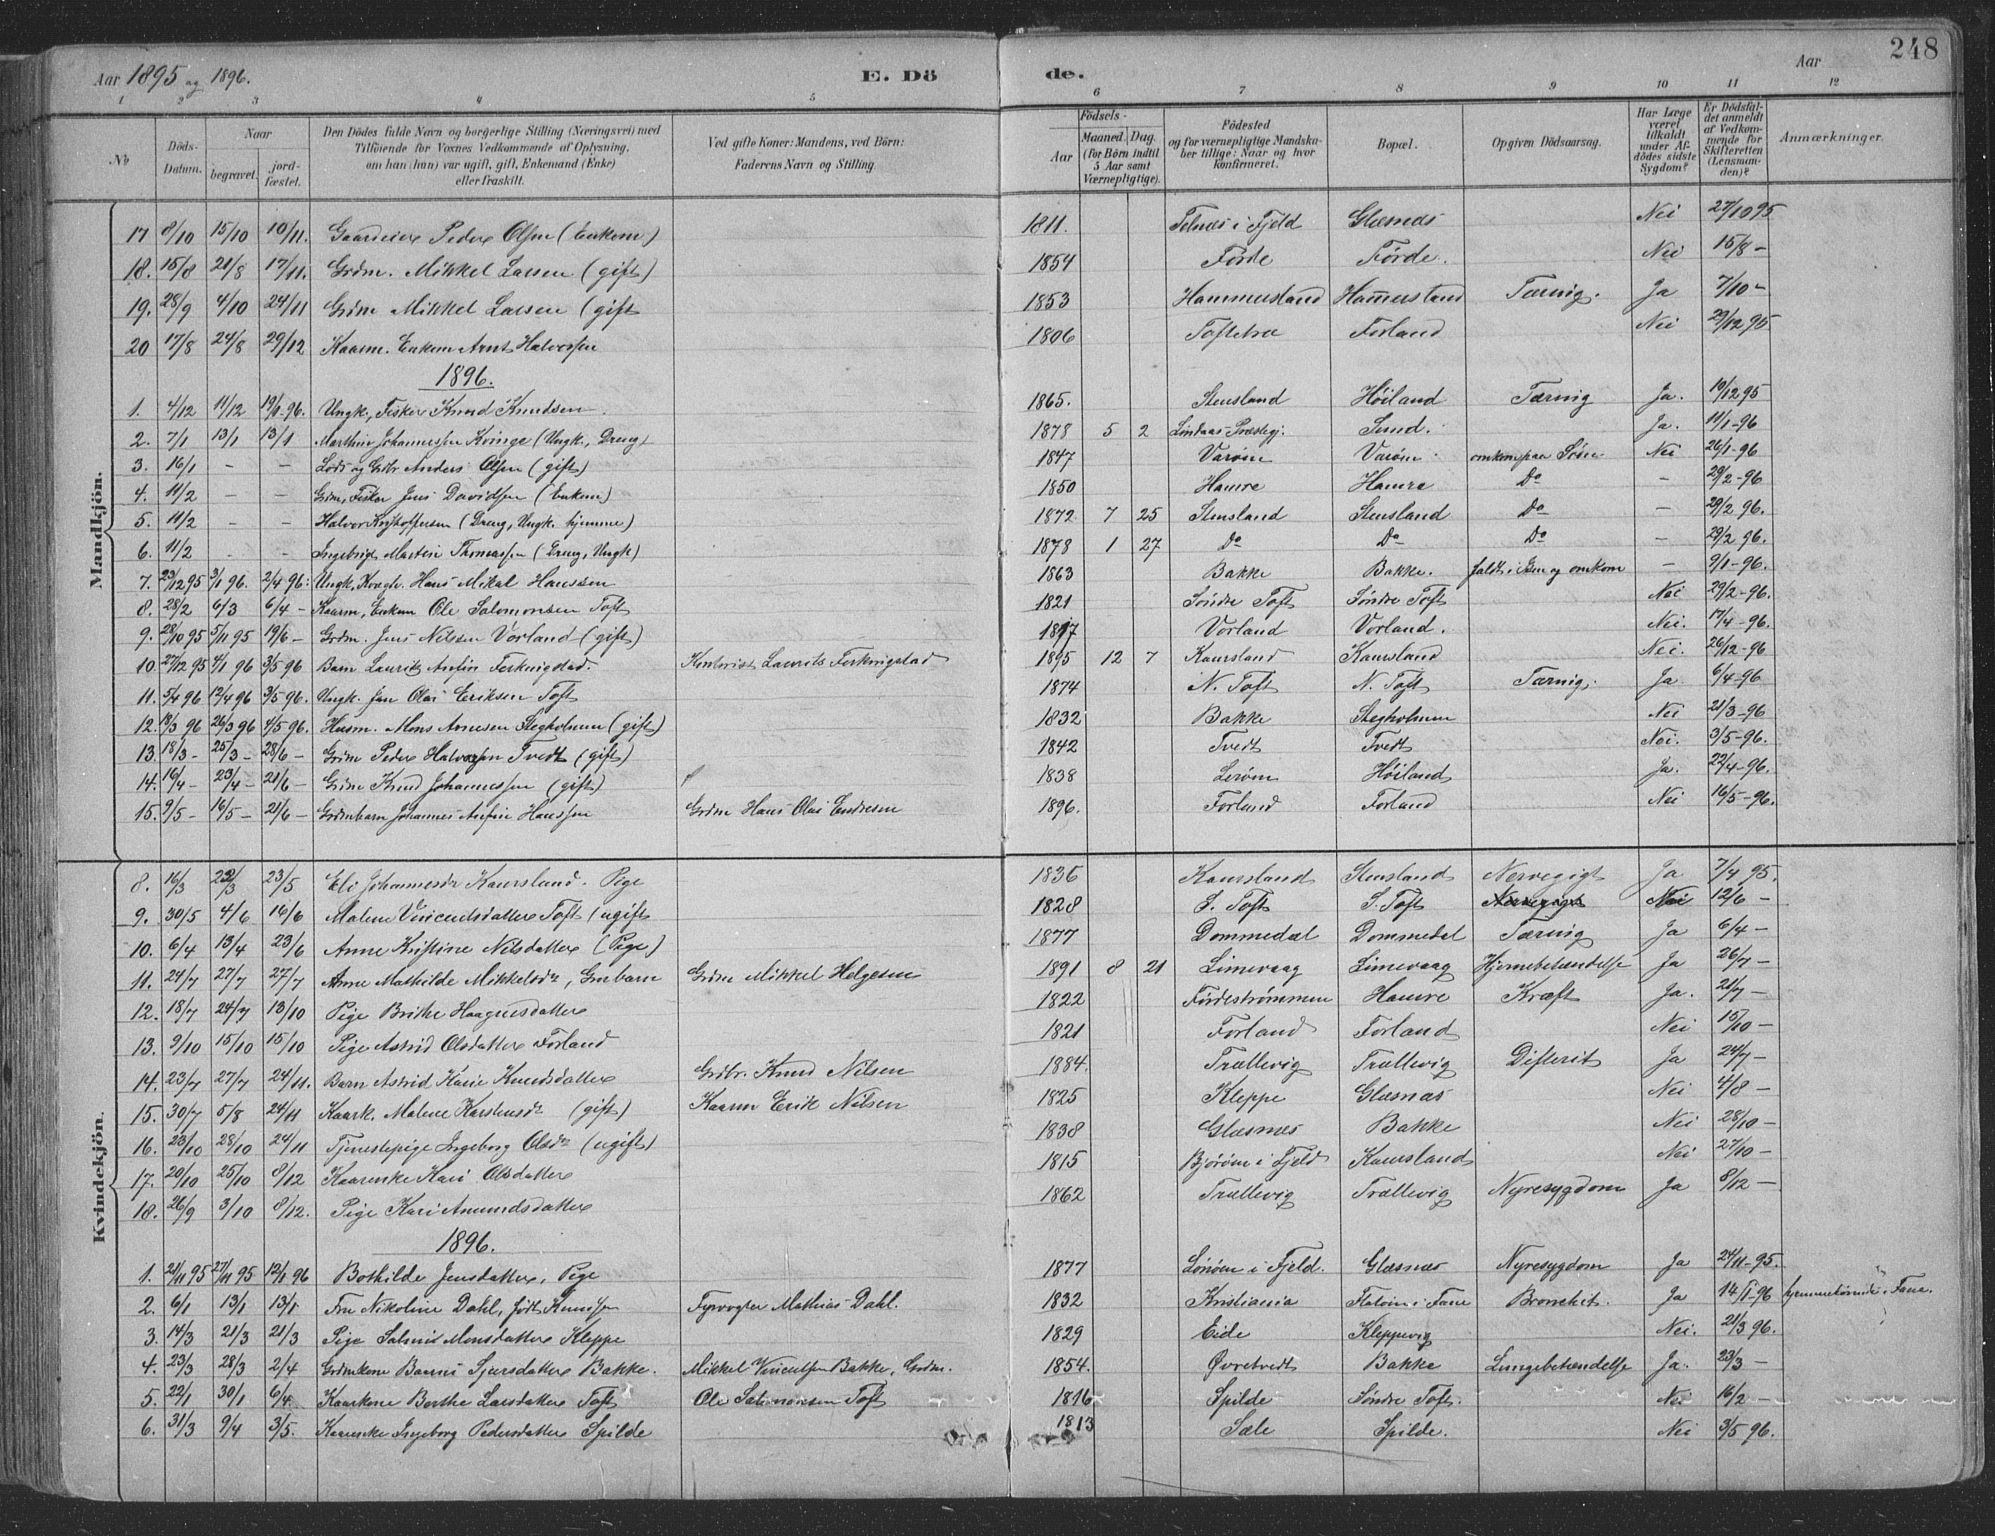 Aar 1895 og 1896. E. Dö de. Aar 248
1 2 3 4 5 6 7 8 9 10 11 12
No
Döds-Datum.
Naar begravet. jordfæstet.
Den Dödes fulde Navn og borgerlige Stilling (Næringsvei) med Tilföiende for Voxnes Vedkommende af Oplysning, om han (hun) var ugift, gift, Enkemand (Enke) eller fraskilt.
Ved gifte Koner: Mandens, ved Börn: Faderens Navn og Stilling.
Födsels- Aar Maaned. Dag. (for Börn indtil 5 Aar samt Værnepligtige).
Födested og for værnepligtige Mandskaber tillige: Naar og hvor konfirmeret.
Bopæl.
Opgiven Dödsaarsag.
Har Læge været tilkaldt under Afdödes sidste Sygdom?
Er Dödsfaldet anmeldt af Vedkommende for Skifteretten (Lensmanden)?
Anmærkninger.
Mandkjön.
17 8/10 15/10 10/11. Gaardeier Peder Olsen (Enkem) 1811. Telnæs i Fjeld Glæsnæs Nei 27/10 95
18. 15/8 21/8 17/11. Grdm. Mikkel Larsen (gift) 1854 Förde Förde. Nei 15/8 -
19. 28/9 4/10 24/11 Grdm Mikkel Larsen (gift 1853 Hammersland Hammersland Tæring. Ja 7/10 -
20 17/8 24/8 29/12 Kaarm. Enkem Arnt Halvorsen 1806 Toftetræ Forland Nei 29/12 95
1896.
1. 4/12 11/12 19/1 96. Ungk, Fisker Knud Knudsen 1865. Stensland Höiland Tæring Ja. 10/12 95
2. 7/1 13/1 13/1 Marthin Johannessen Kvinge (Ungk., Dreng) 1878 5 2 Lindaas Præstegj. Sund. Ja. 11/1-96
3. 16/1 - - Lods og Grbr Anders Olsen (gift) 1847 Varöen Varöen omkom paa Söen Nei 26/1-96
4. 11/2 - - Grdm, Fisker Jens Davidsen (Enkem) 1850 Hamre Hamre Do - 29/2-96
5. 11/2 - - Halvor Kristoffersen (Dreng, Ungk. hjemme) 1872 7 25 Stensland Stensland Do - 29/2 96.
6. 11/2 - - Ingebrigt Martin Thomassen (Dreng, Ungk) 1878 1 27 Do Do Do - 29/2 96.
7. 23/12 95 3/1 96. 2/4 96. Ungk, Hans Mikal Hanssen 1863 Bakke Bakke. faldt i Isen og omkom - 9/1-96.
8. 28/2 6/3 6/4 - Kaarm, Enkem Ole Salomonsen Toft 1821 Söndre Toft Söndre Toft Nei 29/2-96.
9. 28/10 95 5/11 95 19/6 - Grdm. Jens Nilsen Vorland (gift) 1817 Vorland Vorland. Nei. 17/4-96.
10. 27/12 95 4/1 96 3/5 96 Barn Laurits Anfin Ferkingstad. Kontorist Laurits Ferkingstad 1895 12 7 Kaursland Kaursland Nei. 26/12-96
11. 5/4 96 12/4 96 3/5 96. Ungk. Jan Olai Eriksen Toft 1874 N. Toft N. Toft Tæring. Ja. 6/4-96
12. 18/3 96 26/3 96 4/5 96. Husm. Mons Arnesen Stegholmen (gift) 1832 Bakke Stegholmen Nei 21/3-96
13. 18/3 - 25/3 - 28/6 - Grdm Peder Halvorsen Tvedt (gift) 1842 Tvedt Tvedt Nei. 3/5-96.
14. 16/4 - 23/4 - 21/6 - Grdm Knud Johannessen (gift) 1838 Leröen Höiland Ja. 22/4-96.
15. 9/5 - 16/5 - 21/6 - Grdmbarn Johannes Anfin Hanssen Grdm Hans Olai Endresen 1896. Forland Forland Nei 16/5-96.
Kvindekjön.
8. 16/3 22/3 23/5 Eli Johannesdr Kaursland. Pige 1836 Kaursland Stensland Nervegigt Ja 7/4 95.
9. 30/5 4/6 16/6 Malene Vincentsdatter Toft (ugift 1828 S. Toft S. Toft Nervegigt Nei 12/6 -
10. 6/4 13/4 23/6 Anne Kristine Nilsdatter (Pige) 1877 Dommedal Dommedal Tæring Ja 6/4 -
11. 24/7 27/7 27/7 Anne Mathilde Mikkelsdr, Grmbarn Grdm Mikkel Helgesen 1891 8 21 Limevaag Limevaag Hjernebetændelse Ja 26/7 -
12. 18/7 24/7 13/10 Pige Brithe Haagnesdatter 1822 Fördeströmmen Hamre Kræft Ja. 21/7 -
13. 9/10 15/10 15/10 Pige Astrid Olsdatter Forland 1821 Forland Forland Nei 15/10 -
14. 23/7 27/7 24/11. Barn Astrid Karie Knudsdatter Grdbr. Knud Nilsen 1884. Trællevig Trællevig Difterit Ja 24/7 -
15. 30/7 5/8 24/11 Kaark. Malene Karstensdr (gift) Kaarm Erik Nilsen 1825 Kleppe Glæsnæs Nei 4/8 -
16. 23/10 28/10 24/11 Tjenestepige Ingeborg Olsdr (ugift) 1838 Glæsnæs Bakke Nei 28/10 -
17. 20/10 25/10 8/12 Kaarenke Kari Olsdatter 1815 Björöen i Fjeld Kaursland Nei 27/10 -
18. 26/9 3/10 8/12. Pige Kari Amundsdatter 1862 Trællevig Trællevig Nyresygdom Ja 8/12 -
1896.
1. 21/11 95 27/11 95 12/1 96 Bothilde Jensdatter, Pige 1877 Lönöen i Fjeld. Glæsnæs Nyresygdom Ja 24/11-95.
2. 6/1 13/1 13/1 Fru Nikoline Dahl, født Knudsen Fyrvogter Mathias Dahl. 1832 Kristiania i Fane Bronchit. Ja 14/1-96 hjemmehörende i Fana.
3. 14/3 21/3 21/3 Pige Salmine Monsdatter Kleppe 1829 Eide Kleppevig Nei. 21/3 96.
4. 23/3 28/3 2/4 Grdmkone Barni Sjursdatter Bakke. Mikkel Vincentsen Bakke, Grdm. 1854. Øvretvedt Bakke Lungebetændelse Ja. 23/3 -
5. 22/1 30/1 6/4 Kaarkone Berthe Larsdatter Toft Ole Salomonsen Toft 1816 Spilde Söndre Toft. Nei 16/2 -
6. 31/3 9/4 3/5. Kaarenke Ingeborg Pedersdatter Spilde 1813 Sæle Spilde. Nei 3/5 96.